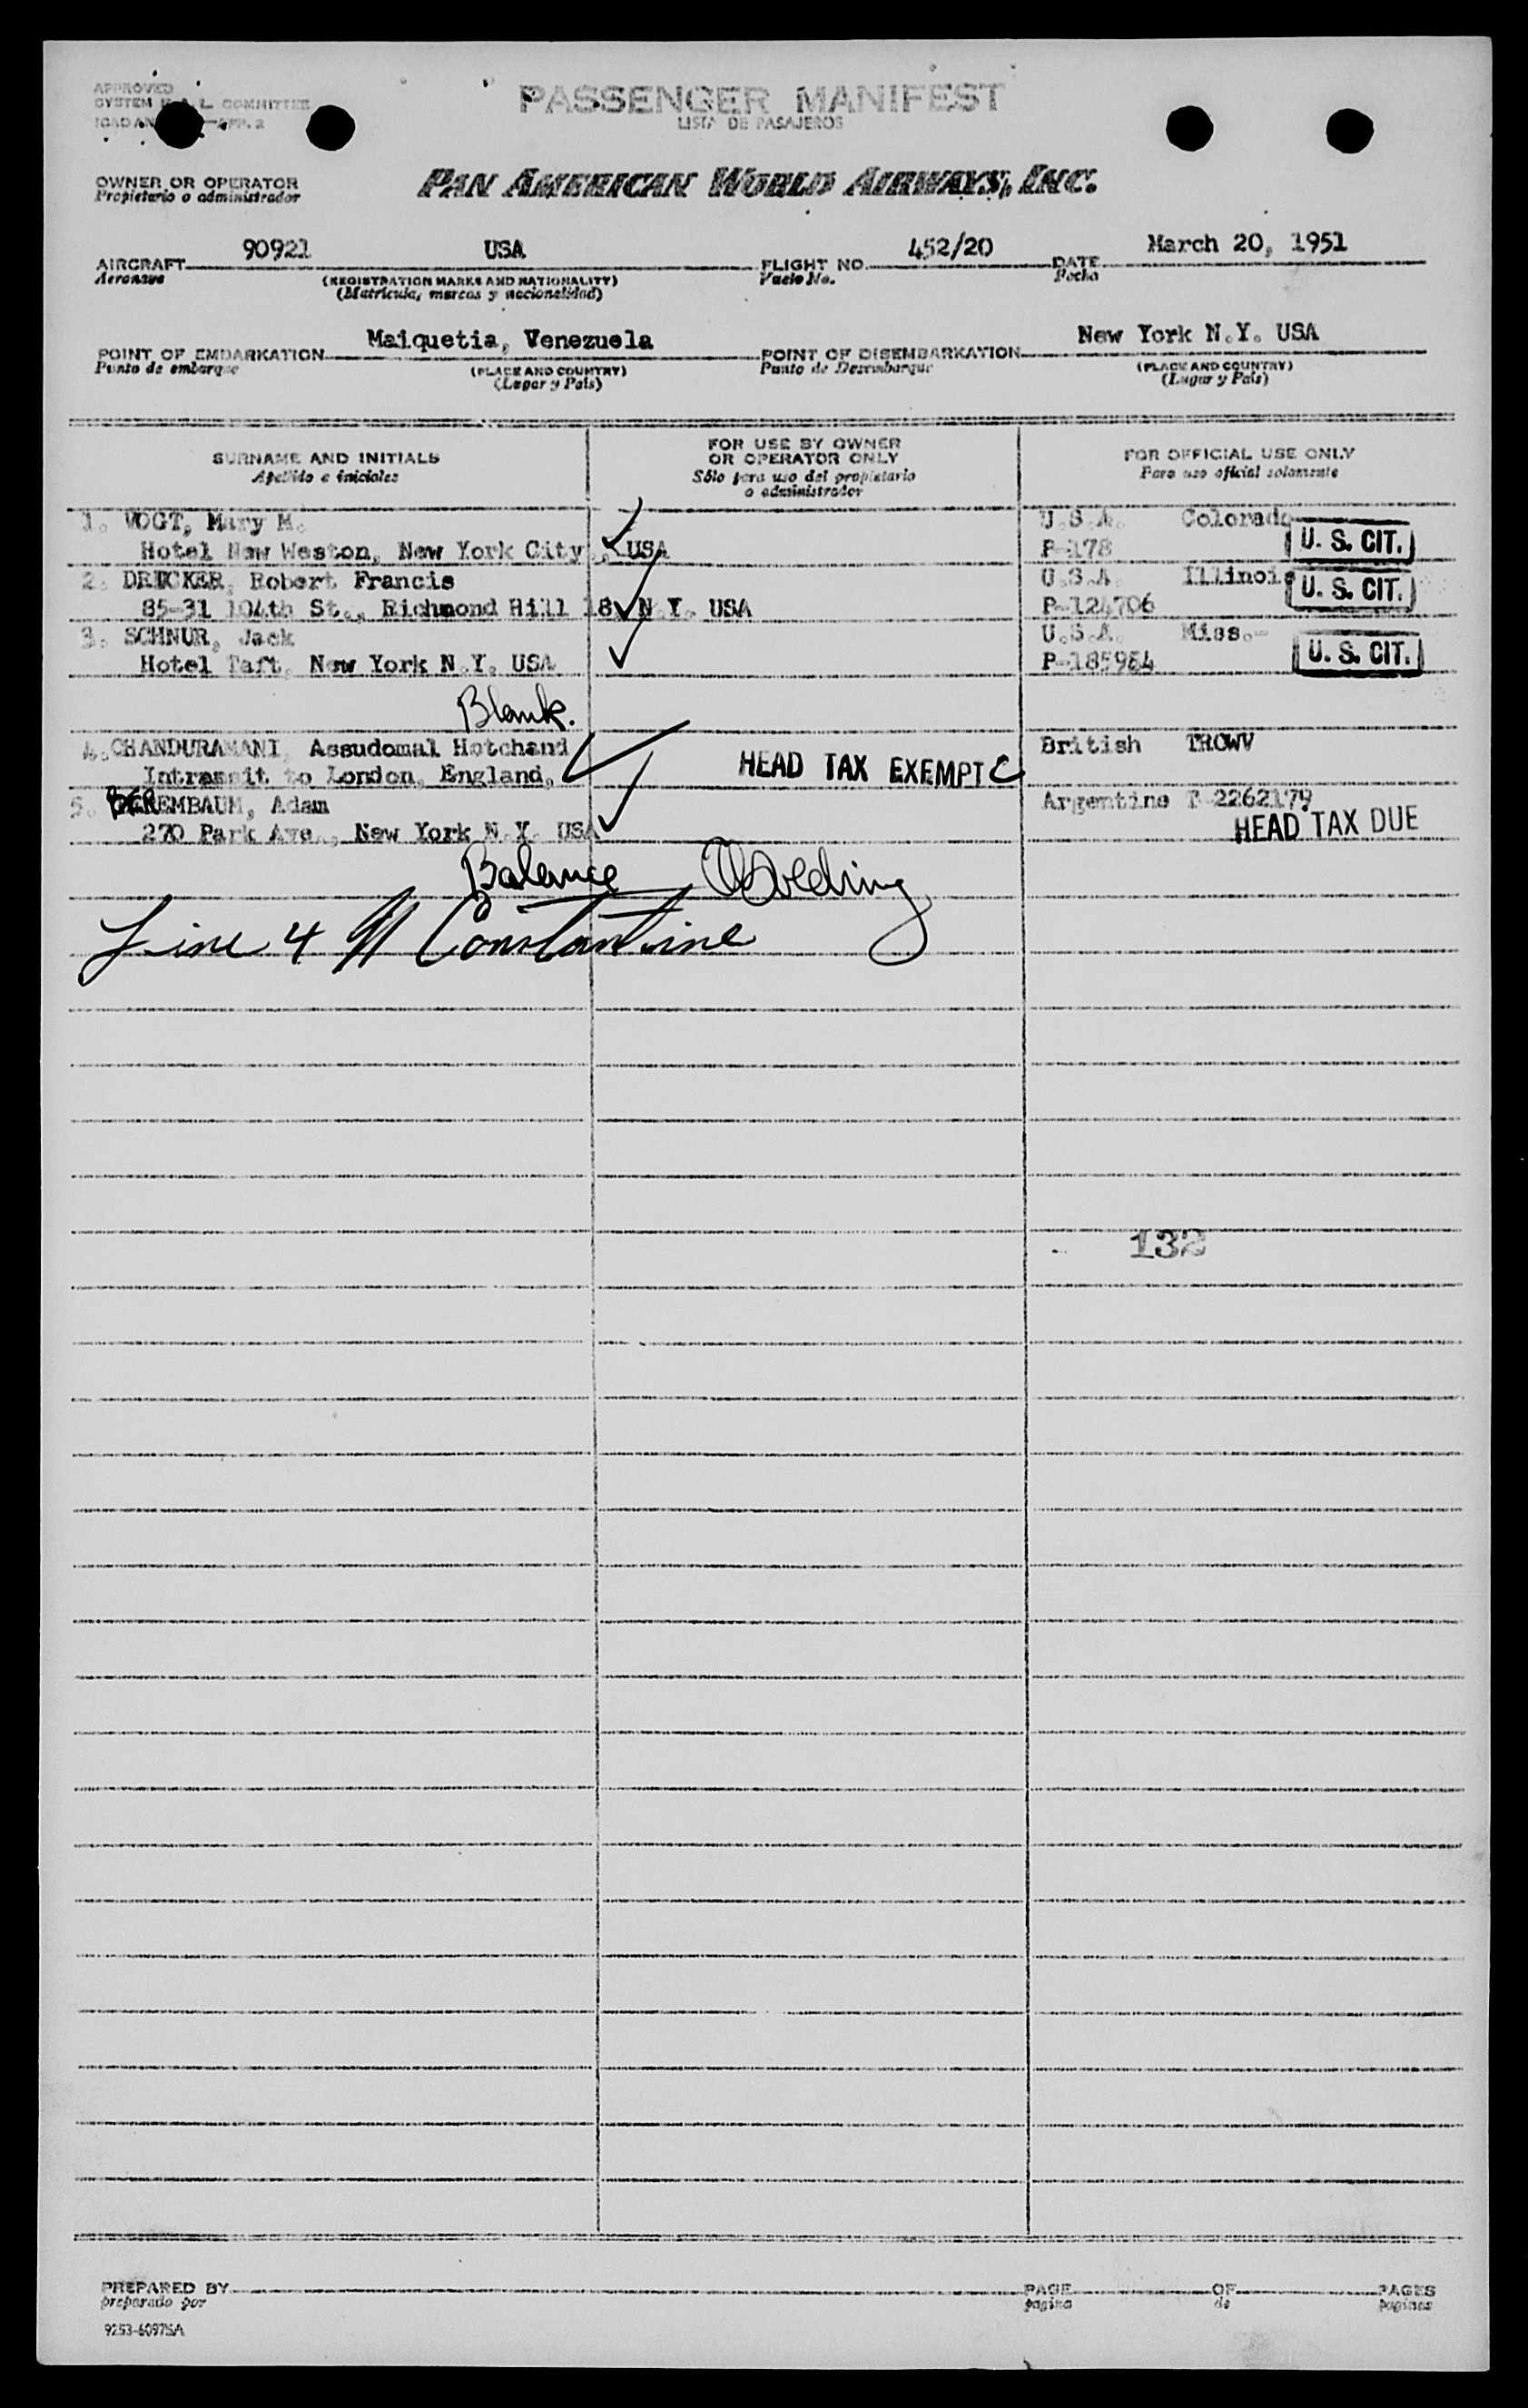 APPROVED
SYSTEM L. COMMITTEE
APP. 2
PASSENGER MANIFEST
LISTA DE PASAJEROS
OWNER OR OPERATOR
Propietario o administrador
PAN AMERICAN WORLD AIRWAYS, INC.
AIRCRAFT 90921 USA FLIGHT NO. 452/20 DATE March 20, 1951
Aeronave (REGISTRATION MARKS AND NATIONALITY) Vuelo No. Fecha
(Matrícula, marcas y nacionalidad)
POINT OF EMBARKATION Maiquetia, Venezuela POINT OF DISEMBARKATION New York N.Y. USA
Punto de embarque (PLACE AND COUNTRY) Punto de Desembarque (PLACE AND COUNTRY)
(Lugar y País) (Lugar y País)
SURNAME AND INITIALS
Apellido e iniciales
FOR USE BY OWNER
OR OPERATOR ONLY
Sólo para uso del propietario
o administrador
FOR OFFICIAL USE ONLY
Para uso oficial solamente
1. VOGT, Mary M. U.S.A. Colorado
Hotel New Weston, New York City, USA P-178 U. S. CIT.
2. Robert Francis U.S.A. Illinois
85-31 104th St., Richmond Hill 18 N.Y. USA P-124706 U. S. CIT.
3. SCHNUR, Jack U.S.A. Miss.-
Hotel Taft, New York N.Y. USA P-185984 U. S. CIT.
Blank.
4. CHANDURAMANI, Assudomal Hotchand British TROWV
Intransit to London, England, HEAD TAX EXEMPT C
5. BEREMBAUM, Adam Argentine P-2262179
270 Park Ave., New York N.Y. USA HEAD TAX DUE
Balance
Line 4 Constantine
132
PREPARED BY PAGE OF PAGES
preparado por página de páginas
9253-6097SA